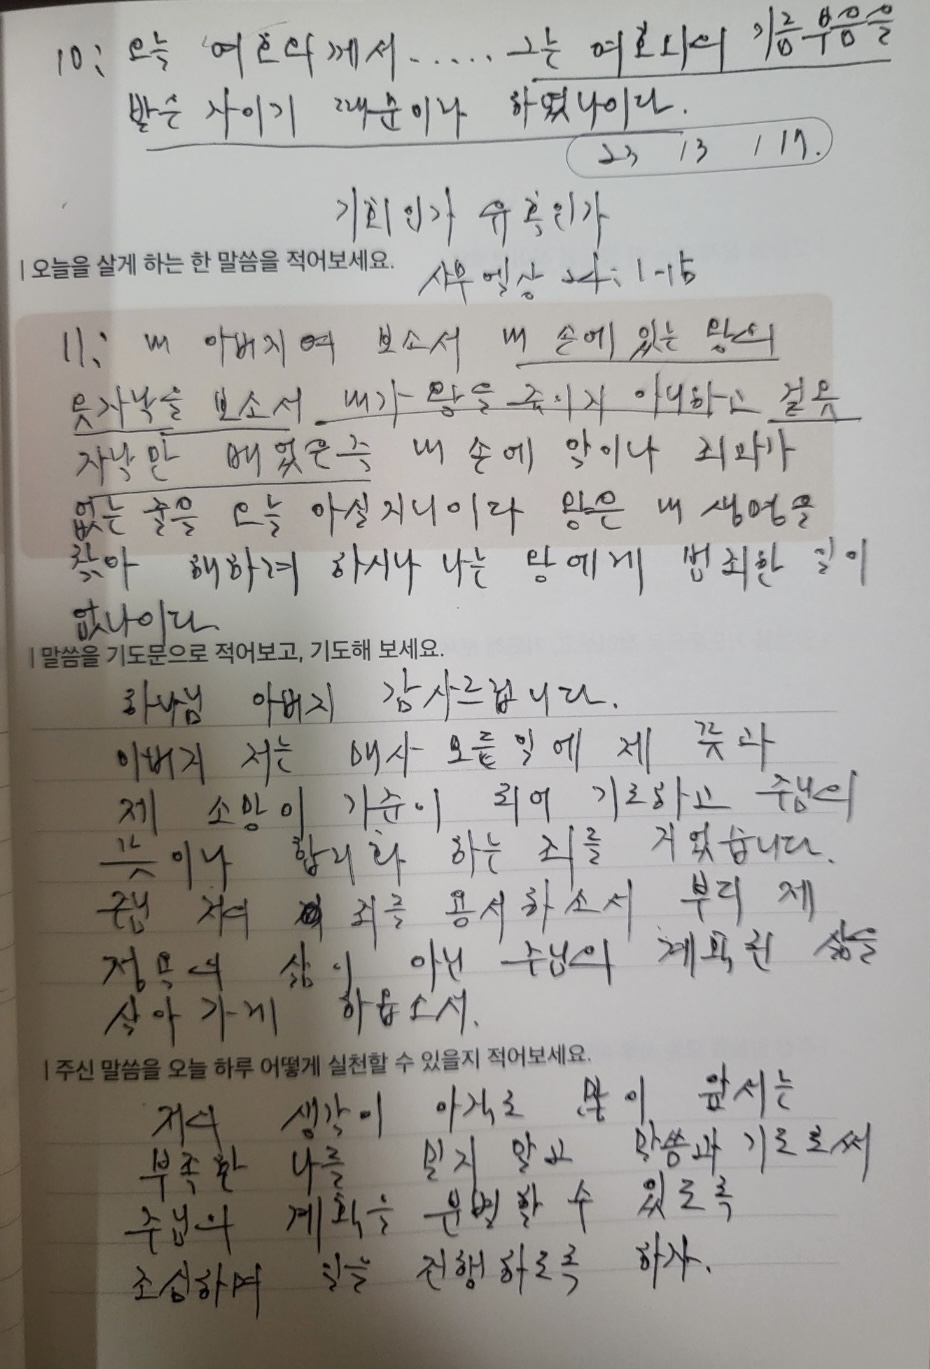 10: 오늘 여호와께서..... 그는 여호와의 기름부음을
받은 자이기 때문이나 하였나이다.
23 13 117.
기회인가 유혹인가
| 오늘을 살게 하는 한 말씀을 적어보세요.
사무엘상 24:1-15
11: 내 아버지여 보소서 내 손에 있는 왕의
옷자락을 보소서 내가 왕을 죽이지 아니하고 겉옷
자락만 베었은즉 내 손에 악이나 죄과가
없는 줄을 오늘 아실지니이다 왕은 내 생명을
찾아 해하려 하시나 나는 왕에게 범죄한 일이
없나이다.
| 말씀을 기도문으로 적어보고, 기도해 보세요.
하나님 아버지 감사드립니다.
아버지 저는 매사 모든 일에 제 뜻과
제 소망이 기준이 되어 기도하고 주님의
뜻이나 합리화 하는 죄를 지었습니다.
주님 저의 죄를 용서하소서 부디 제
정욕의 삶이 아닌 주님의 계획된 삶을
살아가게 하옵소서.
| 주신 말씀을 오늘 하루 어떻게 실천할 수 있을지 적어보세요.
저의 생각이 아직도 많이 앞서는
부족한 나를 믿지 말고 말씀과 기도로써
주님의 계획을 분별할 수 있도록
조심하며 일을 진행하도록 하자.